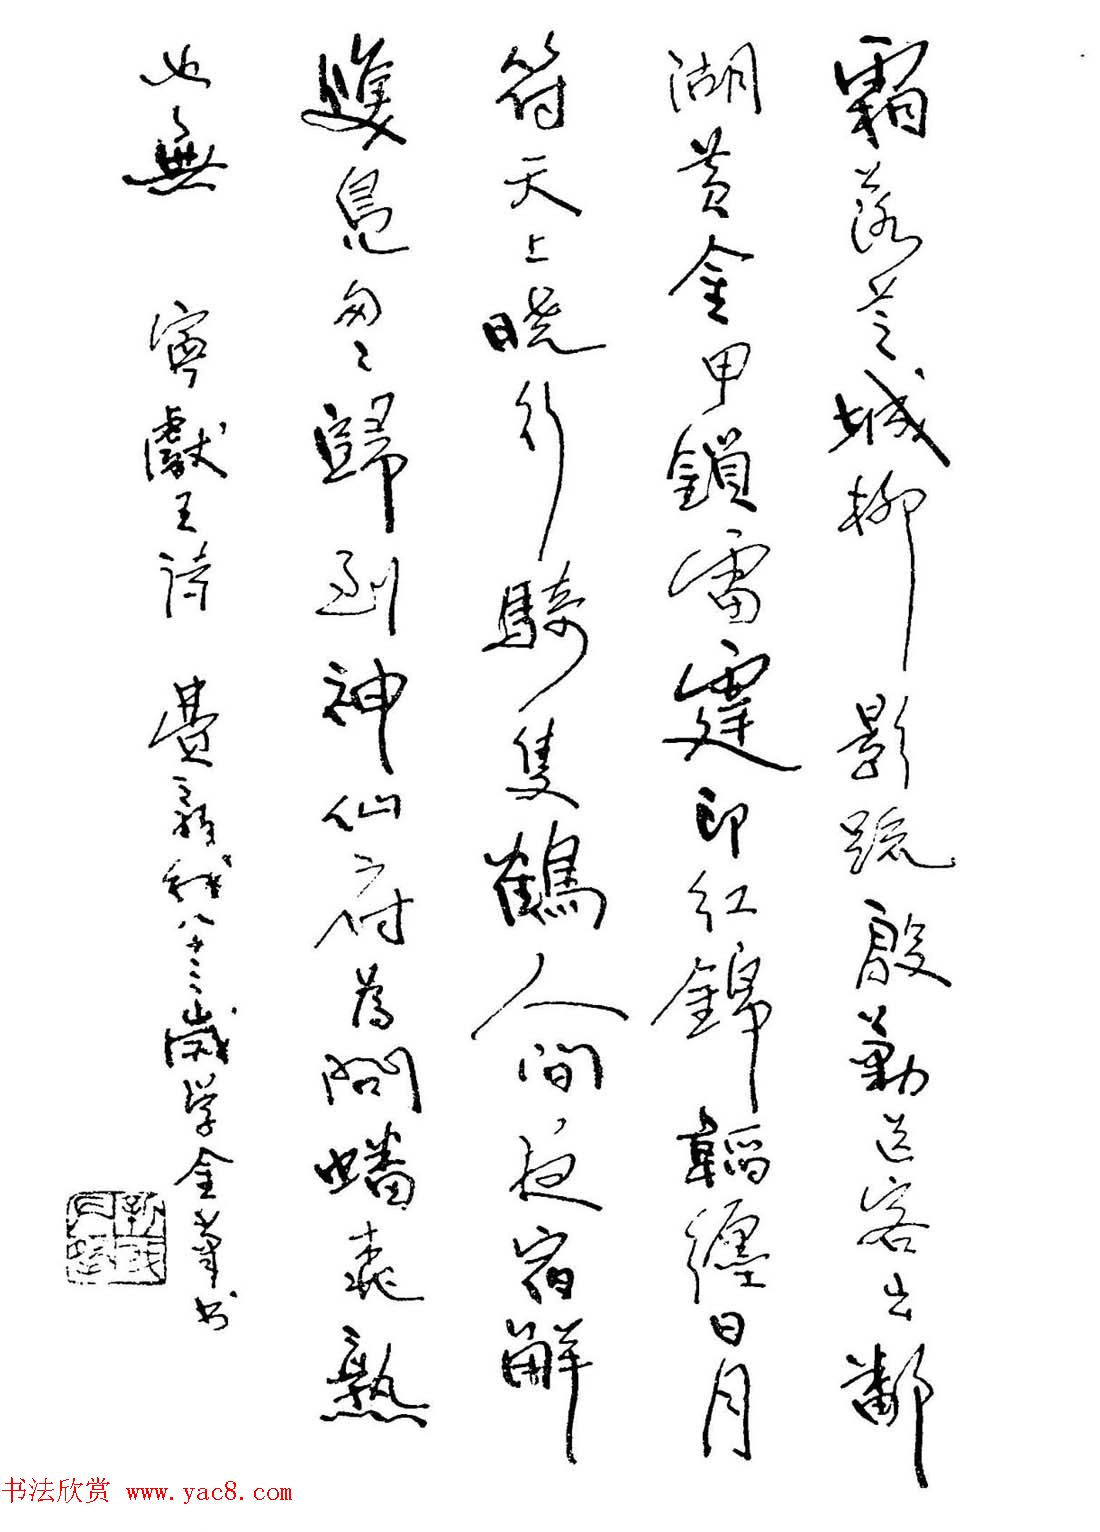 霜落芝城柳影疏殷勤送客出鄱
湖黄金甲鎖雷霆印紅錦韜纏日月
符天上曉行騎隻鶴人間夜宿解
雙鳧匆々歸到神仙府為問蟠桃熟
也無 寧獻王詩 費新我八十三歲學金章書
新我左筆
书法欣赏 www.yac8.com